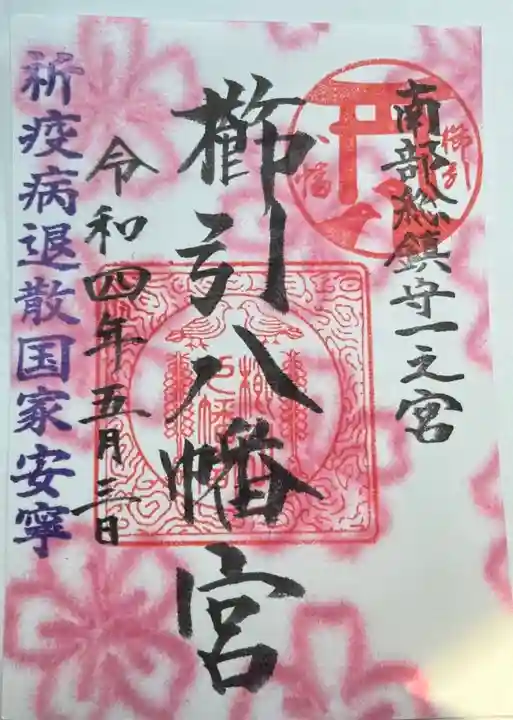 南部総鎮守一之宮
櫛引八幡宮
令和四年五月三日
祈疫病退散国家安寧
櫛引
八幡